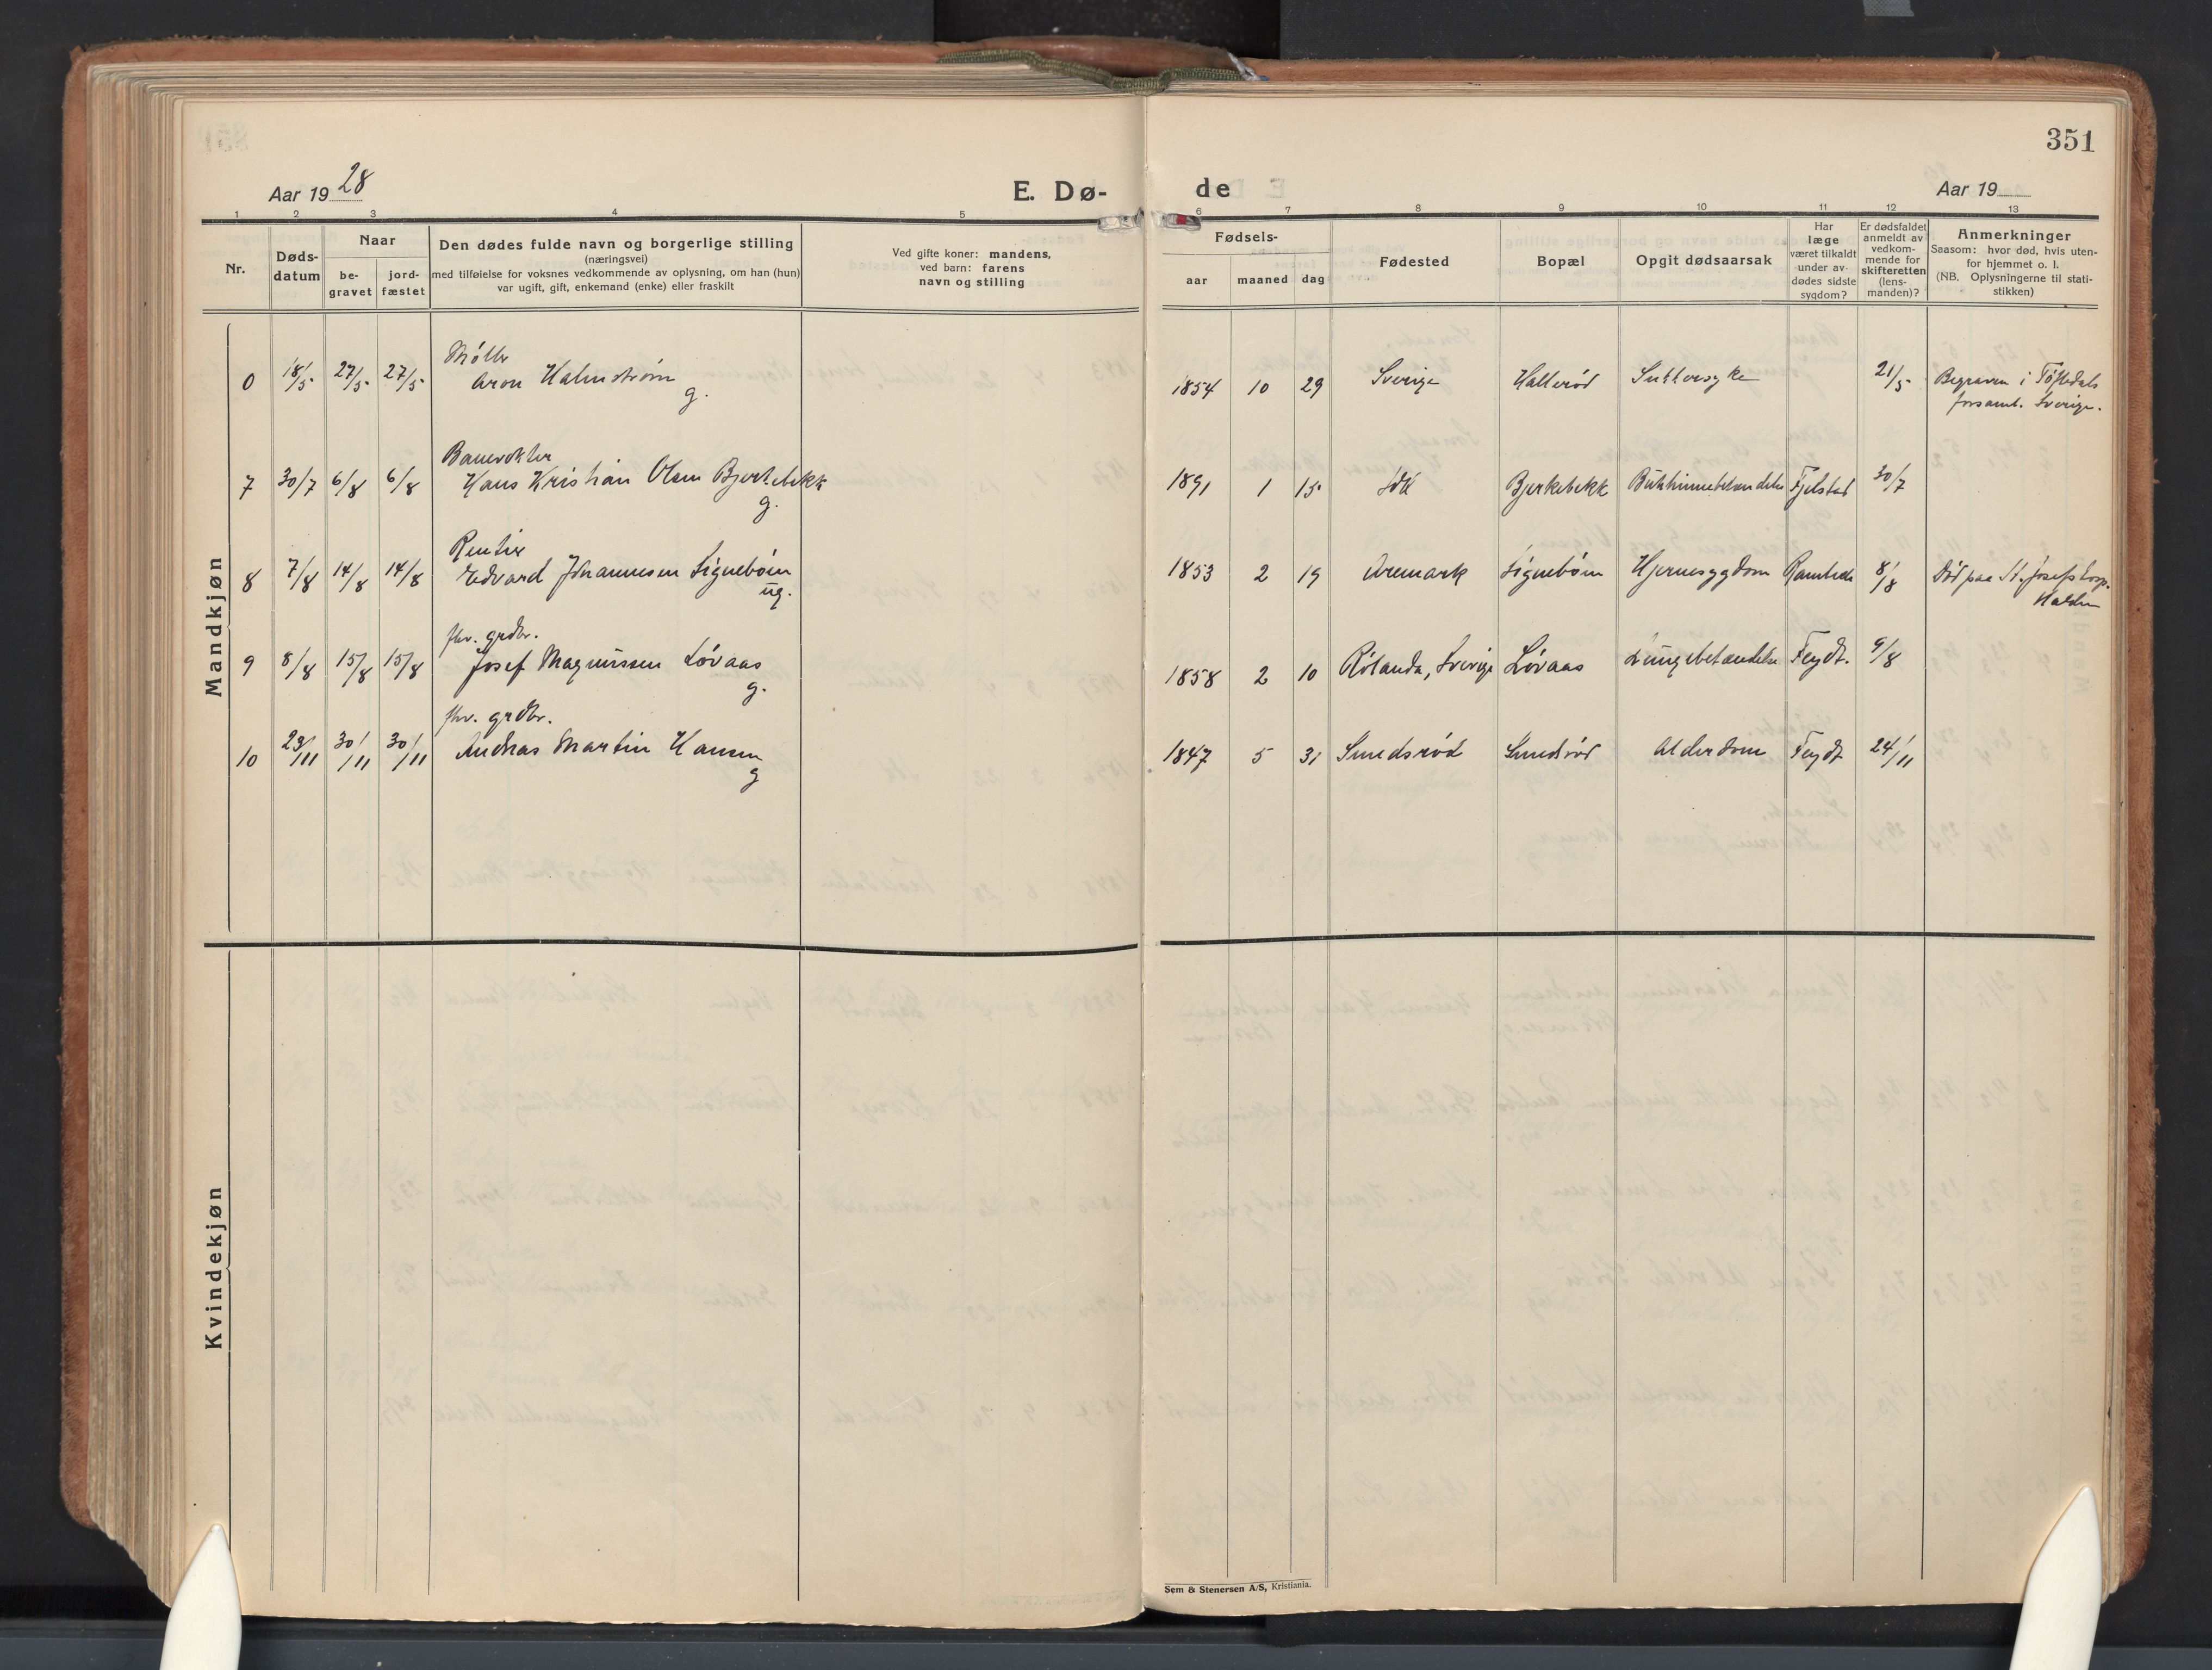 351
Aar 19 28
E. Dø-
de
Aar 19
1 2 3 4 5 6 7 8 9 10 11 12 13
Nr.
Døds-
datum
Naar
be-
gravet
jord-
fæstet
Den dødes fulde navn og borgerlige stilling
(næringsvei)
med tilføielse for voksnes vedkommende av oplysning, om han (hun)
var ugift, gift, enkemand (enke) eller fraskilt
Ved gifte koner: mandens,
ved barn: farens
navn og stilling
Fødsels-
aar maaned dag
Fødested
Bopæl
Opgit dødsaarsak
Har
læge
været tilkaldt
under av-
dødes sidste
sygdom?
Er dødsfaldet
anmeldt av
vedkom-
mende for
skifteretten
(lens-
manden)?
Anmerkninger
Saasom: hvor død, hvis uten-
for hjemmet o. l.
(NB. Oplysningerne til stati-
stikken)
Mandkjøn
Møller
0 18/5 27/5 27/5 Aron Halmstrøm 1854 10 29 Sverige Hallerød Sukkersyke 21/5 Begraven i Töftedals
g. forsaml. Sverige.
Banevokter
7 30/7 6/8 6/8 Hans Kristian Olsen Bjerkebekk 1891 1 15 Bjerkebekk Bukhinnebetændelse Fjelstad 30/7
g.
Rentier
8 7/8 14/8 14/8 Edvard Johannesen Lignebøen 1853 2 19 Aremark Lignebøen Hjernesygdom 8/8 Død paa St. Josefs hosp.
ug. Halden
fhv. grdbr.
9 8/8 15/8 15/8 Josef Magnussen Løvaas 1858 2 10 Rölanda, Sverige Løvaas Lungebetændelse Feydt. 9/8
g.
fhv. grdbr.
10 23/11 30/11 30/11 Andreas Martin Hansen 1847 5 31 Smedsrød Smedsrød Alderdom Feydt 24/11
g
Kvindekjøn
Sem & Stenersen A/S, Kristiania.